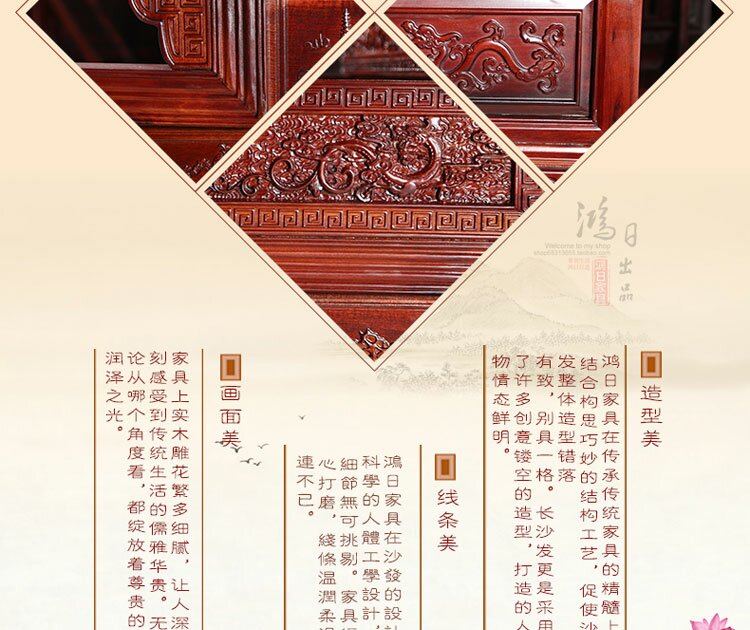 鸿日出品
Welcome to my shop
鸿日家具
造型美
鸿日家具在传承传统家具的精髓上
结合构思巧妙的结构工艺，促使沙
发整体造型错落
有致，别具一格。长沙发更是采用
了许多创意镂空的造型，打造的人
物情态鲜明。
线条美
鴻日家具在沙發的設計
科學的人體工學設計，
細節無可挑剔。家具經
心打磨，綫條温潤柔滑
連不已。
画面美
家具上实木雕花繁多细腻，让人深
刻感受到传统生活的儒雅华贵。无
论从哪个角度看，都绽放着尊贵的
润泽之光。